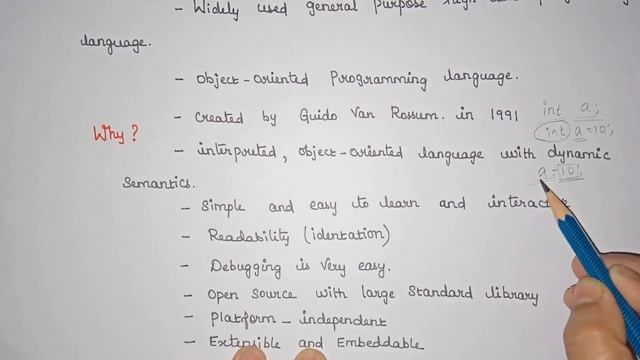 - Widely used general purpose
language.
- Object-oriented Programming language.
- Created by Guido Van Rossum. in 1991 int a;
Why? int a=10;
- interpreted, object-oriented language with dynamic
a=10;
Semantics.
- Simple and easy to learn and interactive
- Readability (identation)
- Debugging is Very easy.
- Open Source with large Standard library
- Platform - independent
- Extensible and Embeddable